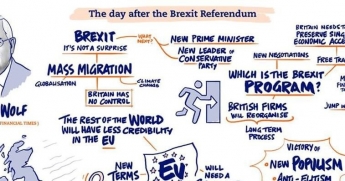 The day after the Brexit Referendum
BREXIT
IT'S NOT A SURPRISE
WHAT NEXT?
NEW PRIME MINISTER
NEW LEADER OF
CONSERVATIVE
PARTY
MASS MIGRATION
GLOBALISATION
CLIMATE
CHANGE
BRITAIN HAS
NO CONTROL
WOLF
FINANCIAL TIMES)
THE REST OF THE WORLD
WILL HAVE LESS CREDIBILITY
IN THE EU
BRITAIN NEEDS
PRESERVE SING
ECONOMIC ACCE
NEW NEGOTIATIONS
FREE TRA
WHICH IS THE BREXIT
PROGRAM?
BRITISH FIRMS
WILL REORGANISE
JUMP
LONG-TERM
PROCESS
NEW
TERMS
EU
WILL NEED A
VICTORY OF
NEW POPULISM
ANTI-ELITISM